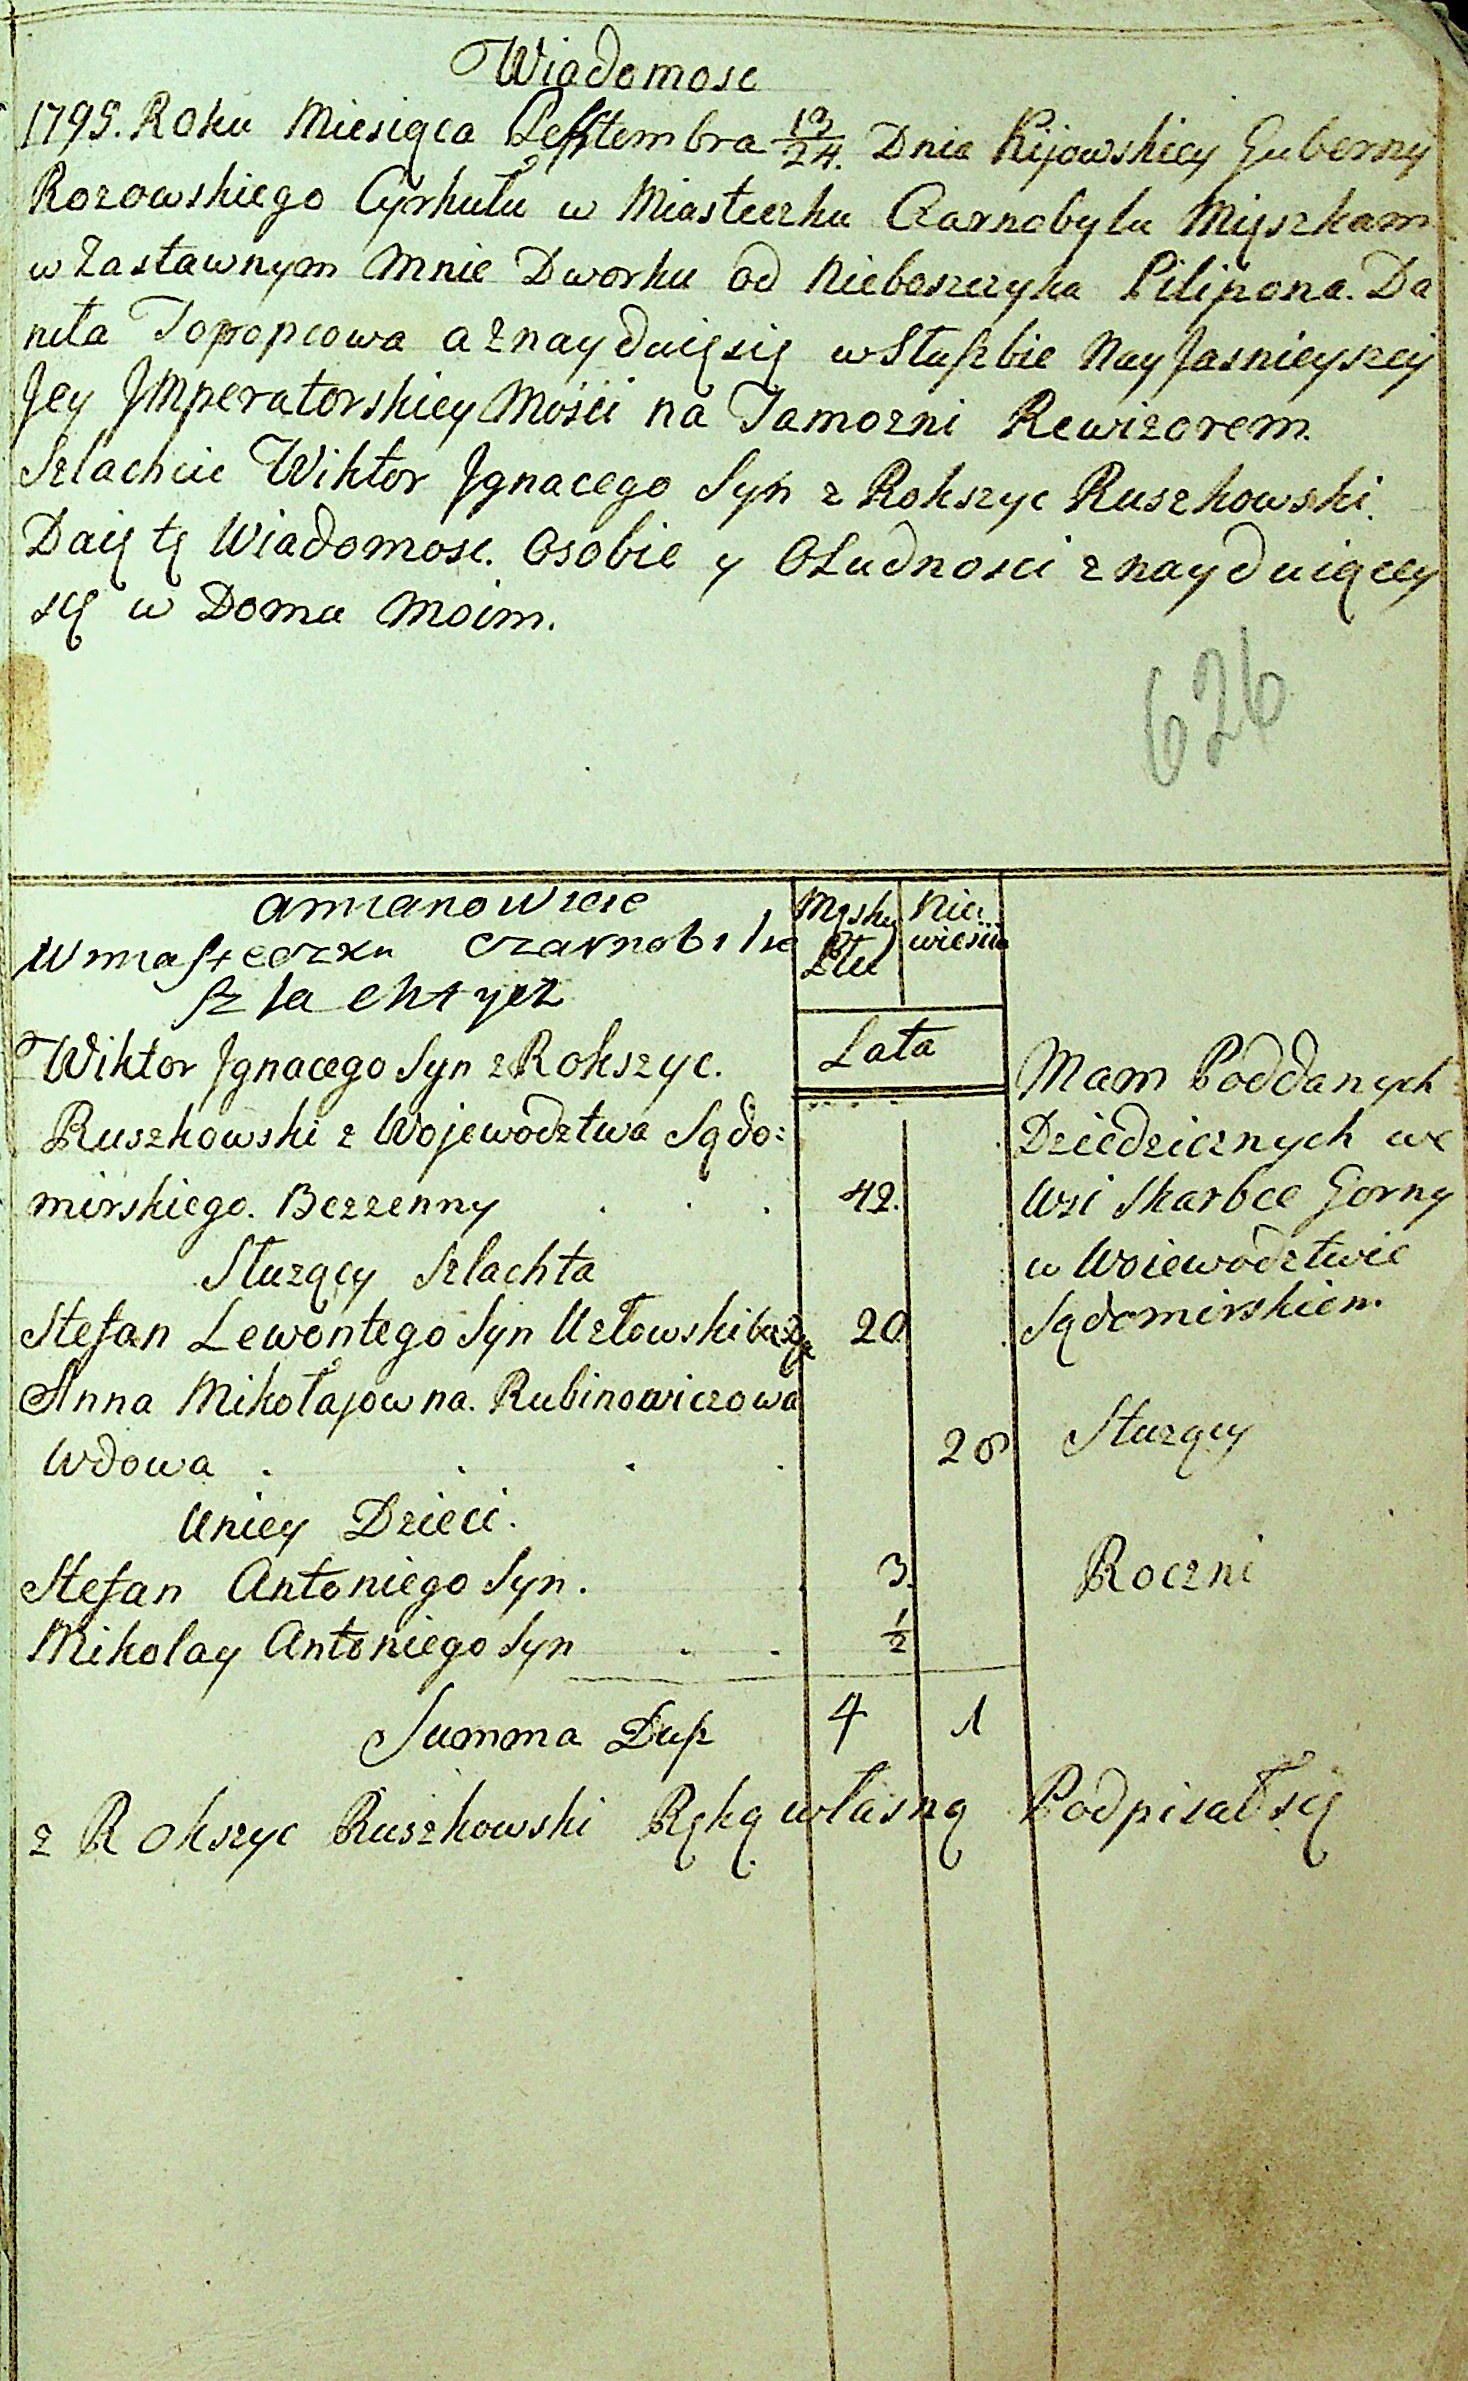 Wiadomosc
1795. Roku Miesiąca Septembra 13/24. Dnia Kijowskiey Guberny
Rozowskiego Cyrkułu w Miasteczku Czarnobylu Mięszkam
w Zastawnym mnie Dworku od Nieboszczyka Pilipona. Da
niła Topopcowa a znayduię się w Słuszbie Nay Jasnieyszey
Jey JMperatorskiey Mości na Tamozni Rewizorem.
Szlachcic Wiktor Jgnacego Syn z Rokszyc Ruszkowski.
Daię tę Wiadomosc. Osobie y OLudnosci znayduiącey
się w Domu Moim.
626
amianowicie
W miasteczku czarnobilu
szlachtycz
Męsky Płu
Nie: wiesia
Lata
Wiktor Jgnacego Syn z Rokszyc.
Ruszkowski z Wojewodztwa Sądo:
mirskiego. Bezzenny . . . 42.
Mam Poddanych
Dziedzicznych we
Wsi Skarbce Gorny
w Woiewodztwie
Sądomirskiem.
Służący Szlachta
Stefan Lewontego Syn Uzłowski 20
Anna Mikołajowna. Rubinowiczowa
Wdowa . . . . 28 Służący
Uniey Dzieci.
Stefan Antoniego Syn. 3. Roczni
Mikolay Antoniego Syn . . 1/2
Summa Dusz 4 1
z Rokszyc Ruszkowski Ręką własną Podpisał się